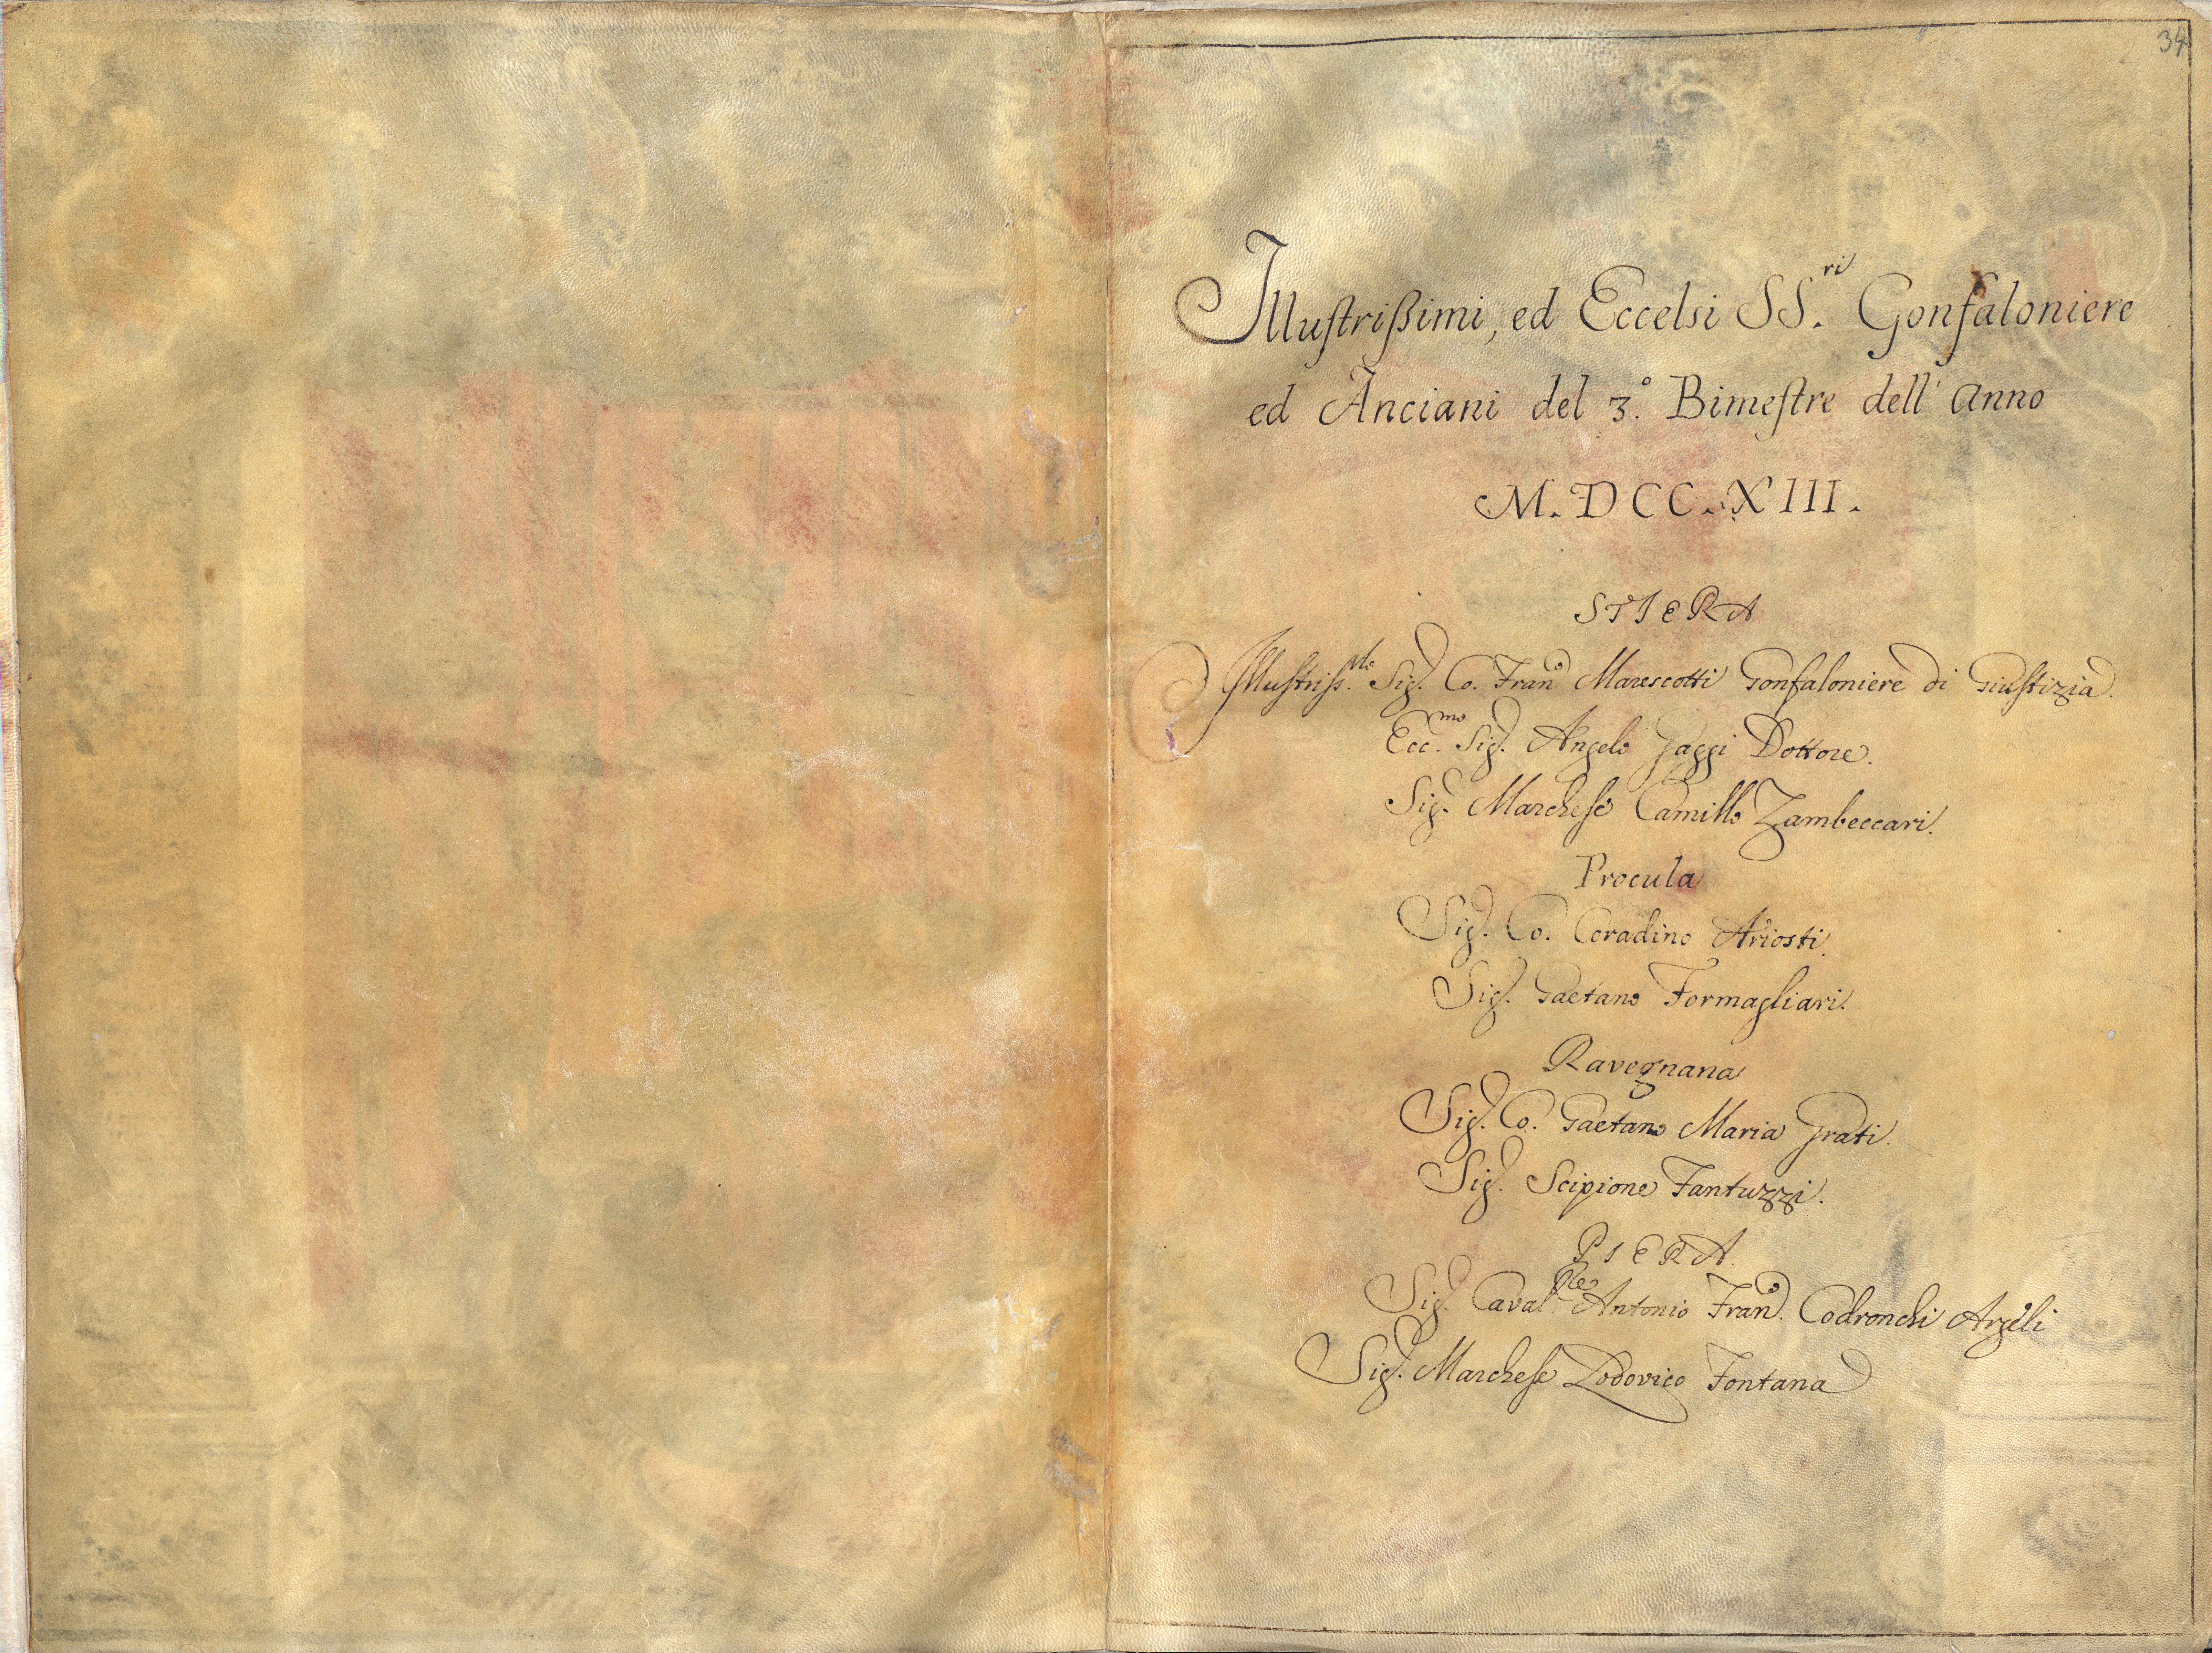 34
Illustrissimi, ed Eccelsi SS.ri Gonfaloniere
ed Anciani del 3.º Bimestre dell' Anno
M.DCC.XIII.
STIERA
Illustriss.mo Sig. Co. Fran.co Marescotti Gonfaloniere di Giustizia.
Ecc.mo Sig. Angelo Gaggi Dottore.
Sig. Marchese Camillo Zambeccari.
Procula
Sig. Co. Coradino Ariosti.
Sig. Gaetano Formagliari.
Ravegnana
Sig. Co. Gaetano Maria Grati.
Sig. Scipione Fantuzzi.
PIERA
Sig. Caval.re Antonio Fran.co Codronchi Argeli
Sig. Marchese Lodovico Fontana